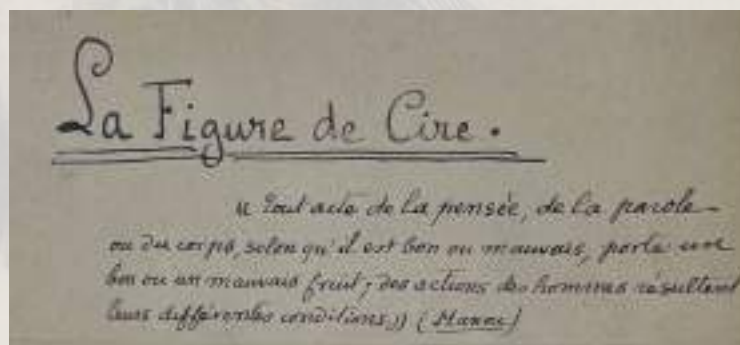 La Figure de Cire.
« Tout acte de la pensée, de la parole
ou du corps, selon qu'il est bon ou mauvais, porte un
bon ou un mauvais fruit ; des actions des hommes résultent
leurs différentes conditions » (Manou)